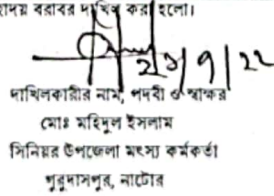 বরাবর দাখিল করা হলো।
২৮/৭/২২
দাখিলকারীর নাম, পদবী ও স্বাক্ষর
মোঃ মহিদুল ইসলাম
সিনিয়র উপজেলা মৎস্য কর্মকর্তা
গুরুদাসপুর, নাটোর